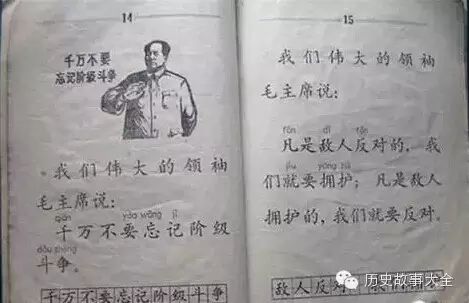 14
千万不要
忘记阶级斗争
我们伟大的领袖
毛主席说：
qiān yào wàng jì
千万不要忘记阶级
dòu zhēng
斗争。
千万不要忘记阶级斗争
15
我们伟大的领袖
毛主席说：
fán dí
凡是敌人反对的，我
jiù yōng hù
们就要拥护；凡是敌人
拥护的，我们就要反对。
敌人反对
历史故事大全